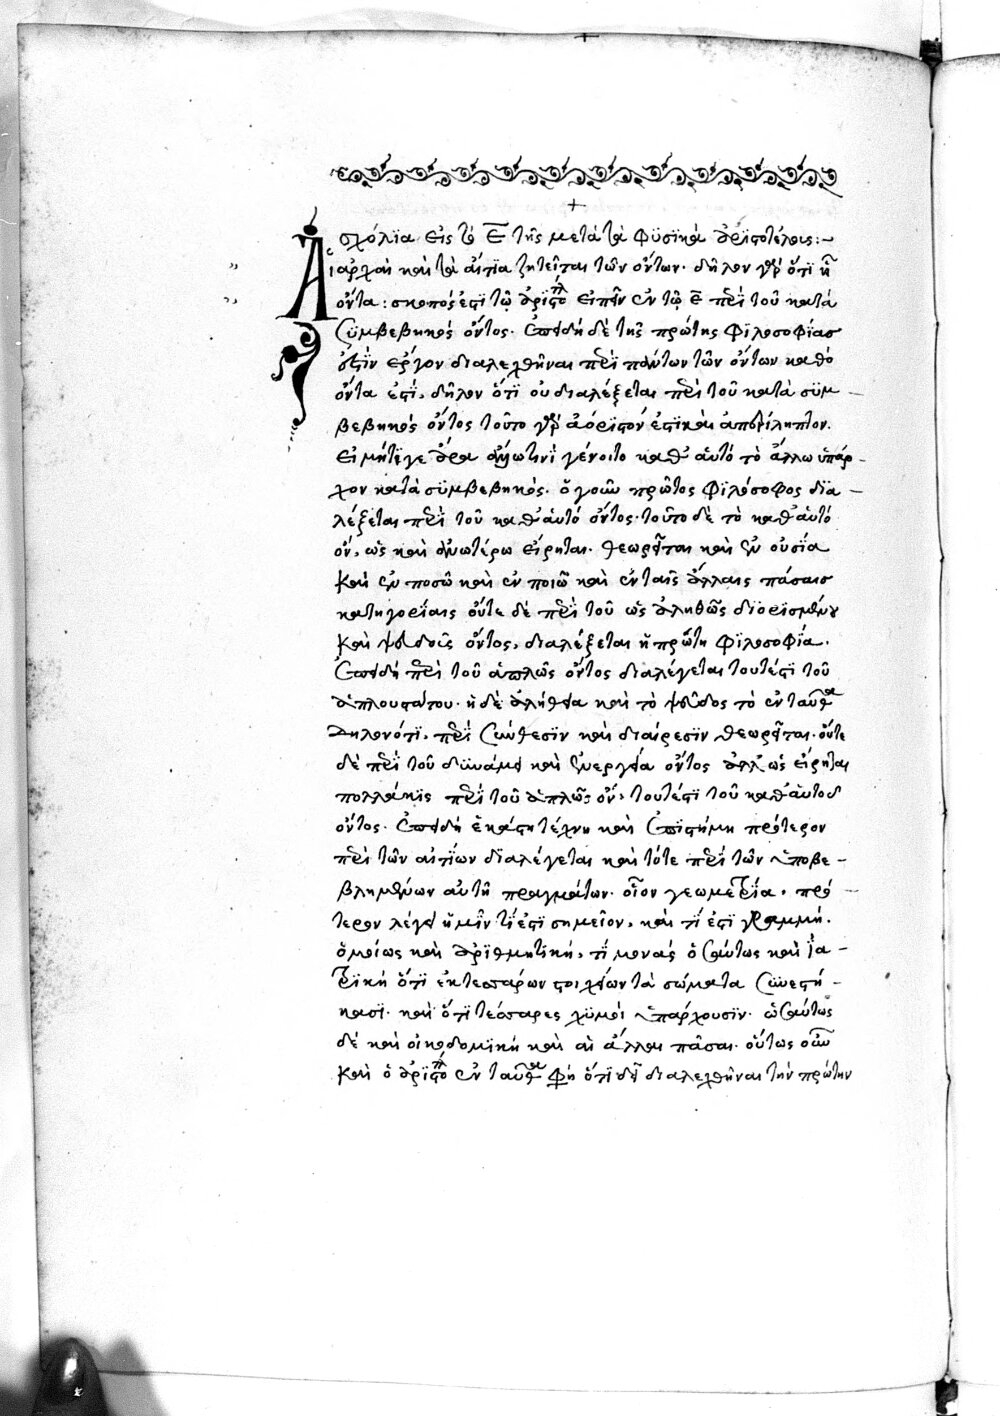 +
σχόλϊα εἰς τὸ Ε τῆς μετὰ τὰ φϋσϊκὰ ἀρϊστοτέλους:~
Αἱ ἀρχαὶ καὶ τὰ αἴτϊα ζητεῖται τῶν ὄντων. δῆλον γὰρ ὅτϊ ᾗ
ὄντα: σκοπός ἐστϊ τῷ ἀρϊστο εἰπεῖν ἐν τῷ Ε περὶ τοῦ κατὰ
σϋμβεβηκός ὄντος. ἐπειδὴ δὲ τῆς πρώτης φϊλοσοφίας
ἐστὶν ἔργον διαλεχθῆναι περὶ πάντων τῶν ὄντων καθὸ
ὄντα ἐστί, δῆλον ὅτϊ οὐ διαλέξεται περὶ τοῦ κατὰ σϋμ-
βεβηκός ὄντος τοῦτο γὰρ ἀόρϊστόν ἐστϊ καὶ ἀπερίληπτον.
εἰ μήτϊγε ἄρα ᾧτινϊ γένοιτο καθ' αὑτό τὸ ἄλλω ὑπάρ-
χον κατὰ σϋμβεβηκός. ὁ γοῦν πρῶτος φϊλόσοφος δϊα-
λέξεται περὶ τοῦ καθ' αὑτό ὄντος. τοῦτο δὲ τὸ καθ' αὑτό
ὄν, ὡς καὶ ἀνωτέρω εἴρηται. θεωρεῖται καὶ ἐν οὐσία
καὶ ἐν ποσῶ καὶ ἐν ποιῶ καὶ ἐν ταῖς ἄλλαις πάσαις
κατηγορίαις οὔτε δὲ περὶ τοῦ ὡς ἀληθῶς διορισμένου
καὶ ψευδοῦς ὄντος, διαλέξεται ἡ πρώτη φϊλοσοφία.
ἐπειδὴ περὶ τοῦ ἁπλῶς ὄντος διαλέγεται τουτέστι τοῦ
ἁπλουστάτου. ἡ δὲ ἀλήθεια καὶ τὸ ψεῦδος τὸ ἐνταῦθα
δηλονότι, περὶ σύνθεσϊν καὶ διαίρεσϊν θεωρεῖται. οὔτε
δὲ περὶ τοῦ δϋνάμει καὶ ἐνεργεία ὄντος ἀλλ' ὡς εἴρηται
πολλάκϊς περὶ τοῦ ἁπλῶς ὄν, τουτέστϊ τοῦ καθ' αὑτὸ
ὄντος. ἐπειδὴ ἑκάστη τέχνη καὶ ἐπϊστήμη πρότερον
περὶ τῶν αἰτίων δϊαλέγεται καὶ τότε περὶ τῶν ὑποβε-
βλημένων αὐτῆ πραγμάτων. οἷον γεωμετρία, πρό-
τερον λέγει ἡμῖν τί ἐστϊ σημεῖον, καὶ τί ἐστϊ γραμμή.
ὁμοίως καὶ ἀρϊθμητϊκή, τί μονάς ὡσαύτως καὶ ἰα-
τρϊκή ὅτϊ ἐκ τεσσάρων στοιχείων τὰ σώματα σϋνεστή-
κασϊ. καὶ ὅτϊ τέσσαρες χϋμοὶ ὑπάρχουσϊν. ὡσαύτως
δὲ καὶ οἰκοδομϊκὴ καὶ αἱ ἄλλαι πᾶσαι. οὕτως οὖν
καὶ ὁ ἀρϊστο ἐνταῦθα φη ὅτϊ δεῖ διαλεχθῆναι τὴν πρώτην